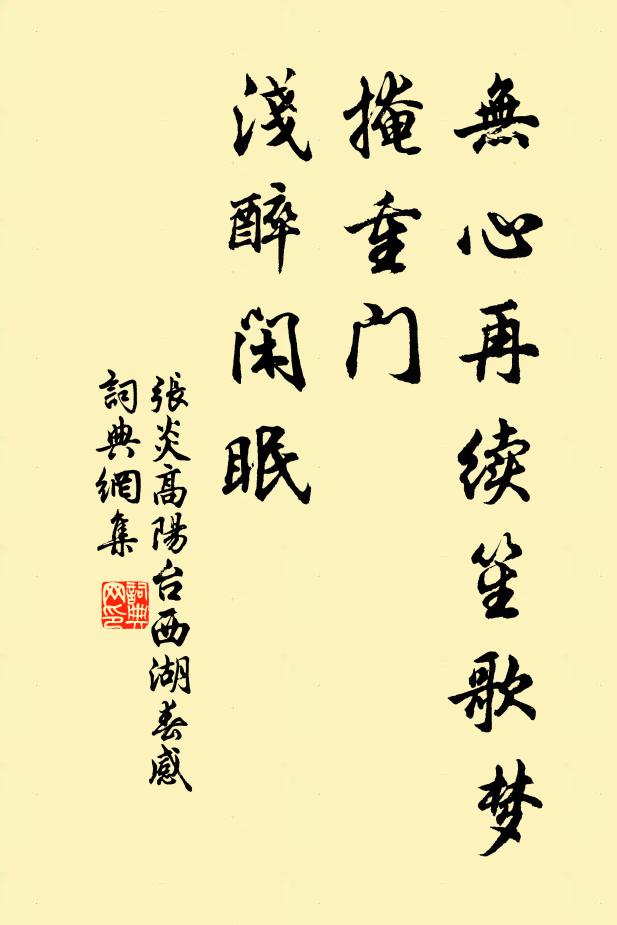 無心再续笙歌梦
掩重门
淺醉闲眠
張炎高陽台西湖春感
詞典網集
詞典
网印